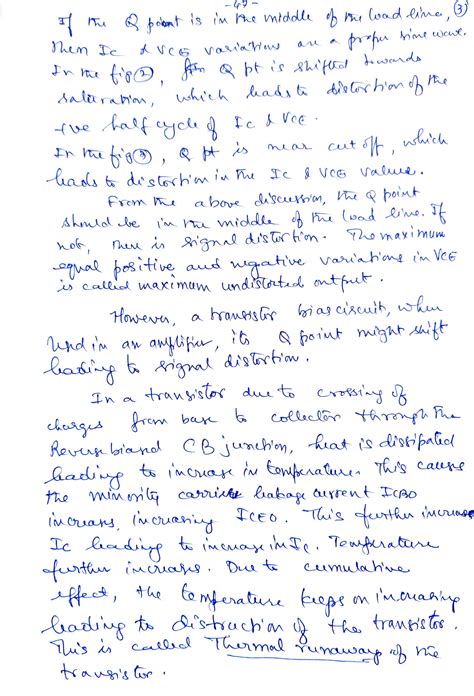 -45-
If the Q point is in the middle of the load line, ③
then Ic & VCE variations are a proper sine wave.
In the fig ②, Q pt is shifted towards
saturation, which leads to distortion of the
+ve half cycle of Ic & VCE.
In the fig ③, Q pt is near cut off, which
leads to distortion in the Ic & VCE values.
From the above discussion, the Q point
should be in the middle of the load line. If
not, there is signal distortion. The maximum
equal positive and negative variations in VCE
is called maximum undistorted output.
However, a transistor bias circuit, when
used in an amplifier, its Q point might shift
leading to signal distortion.
In a transistor due to crossing of
charges from base to collector through the
Reverse biased CB junction, heat is dissipated
leading to increase in temperature. This causes
the minority carrier leakage current ICBO
increases, increasing ICEO. This further increases
Ic leading to increase in Ic. Temperature
further increases. Due to cumulative
effect, the temperature keeps on increasing
leading to distruction of the transistor.
This is called Thermal runaway of the
transistor.